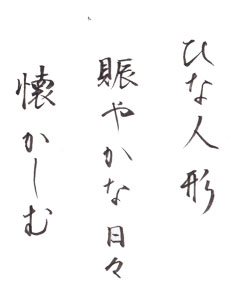 ひな人形
賑やかな日々
懐かしむ